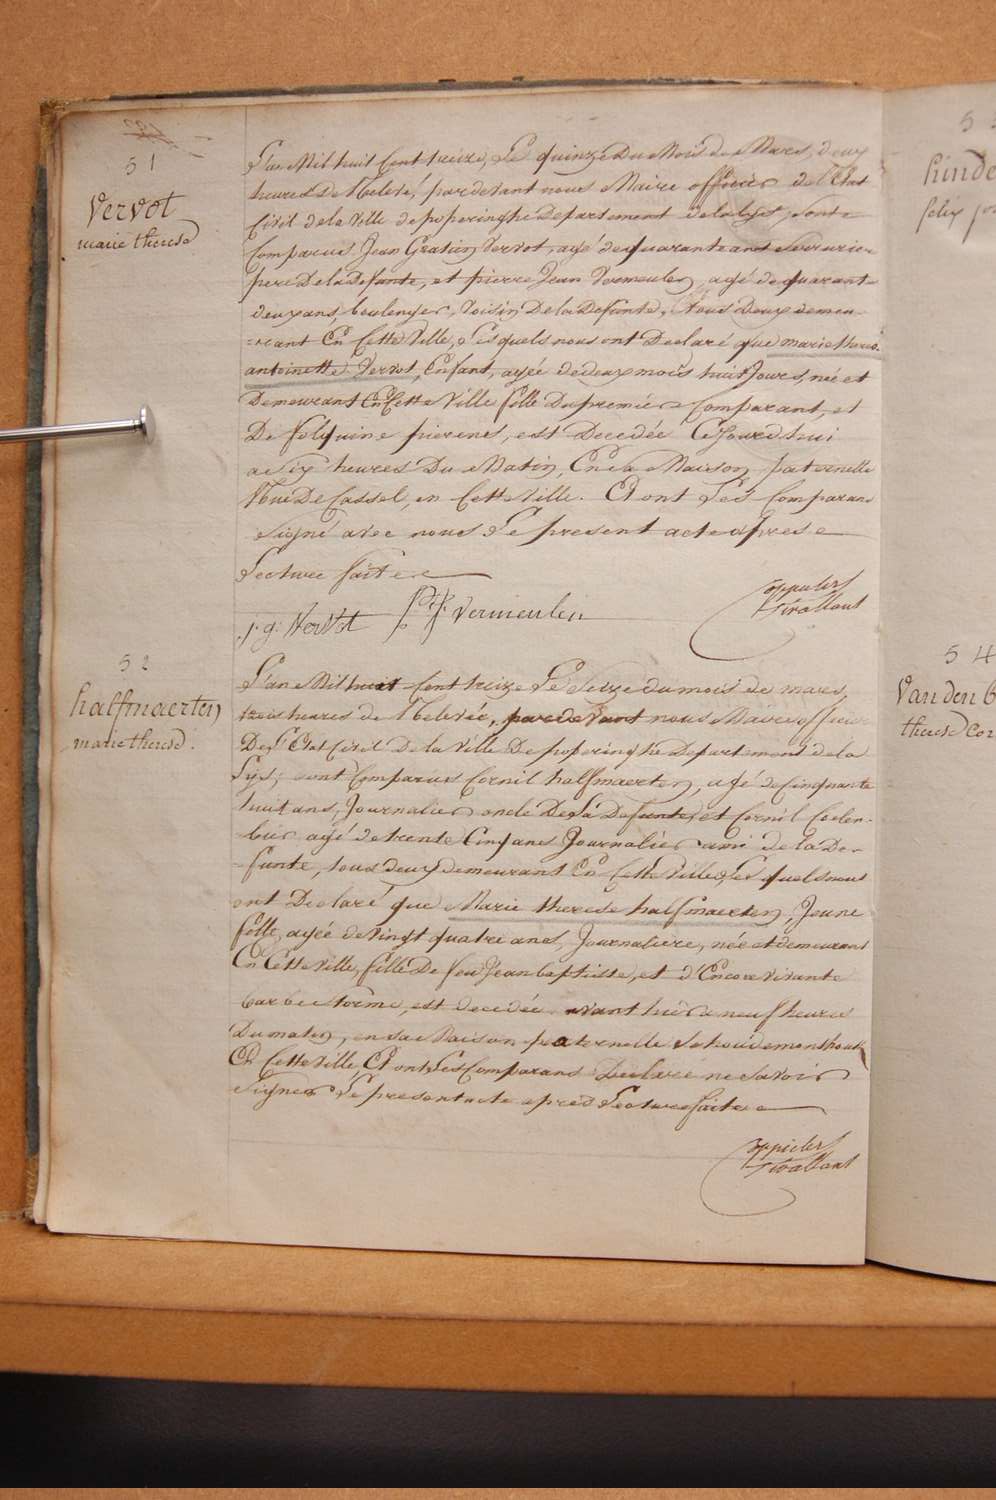 51
Vervot
marie therese
L'an Mil huit Cent treize, Le quinze Du Mois de Mars, deux
heures De Relevé, pardevant nous Maire officier de l'Etat
Civil de la Ville de poperinghe Departement de la Lys, sont
Comparus Jean Gratien Vervot, agé de quarante ans Serrurier
pere De la Defunte, et pierre Jean Vermeulen, agé de quarante
deux ans, boulenger, Voisin De la Defunte, tous Deux demeu-
-rant En Cette Ville, Lesquels nous ont Declaré que marie theres
antoinette Vervot, Enfant, agée de deux mois huit Jours, née et
Demeurant En Cette Ville fille Du premier Comparant, et
De folquine pierens, est Decedée Cejourd'hui
a Six heures Du Matin, En sa Maison paternelle
Rue De Cassel, en Cette Ville. Et ont Les Comparans
signé avec nous Le present acte apres
Lecture faite
j. g. Vervot PJ Vermeulen
52
halfmaerten
marie therese.
L'an Mil huit Cent treize Le Seize du mois de mars,
trois heures de Relevée, pardevant nous Maire officier
De L'Etat Civil De la Ville De poperinghe Departement de la
Lys, sont Comparus Cornil halfmaerten, agé de Cinquante
huit ans, Journalier oncle De la Defunte, et Cornil Coelen-
-bier agé de trente Cinq ans Journalier ami de la De-
-funte, tous deux demeurant En Cette Ville, Les quels nous
ont Declaré que Marie therese halfmaerten, Jeune
fille, agée de vingt quatre ans, Journaliere, née et demeurant
En Cette Ville, fille De feu Jean baptiste, et d'Encore vivante
barbe torme, est decedée avant hier a neuf heures
Du matin, en sa Maison paternelle
En Cette Ville, Et ont Les Comparans Declaré ne Savoir
Signer Le present acte apres Lecture faite
53
54
Van den
therese Cor